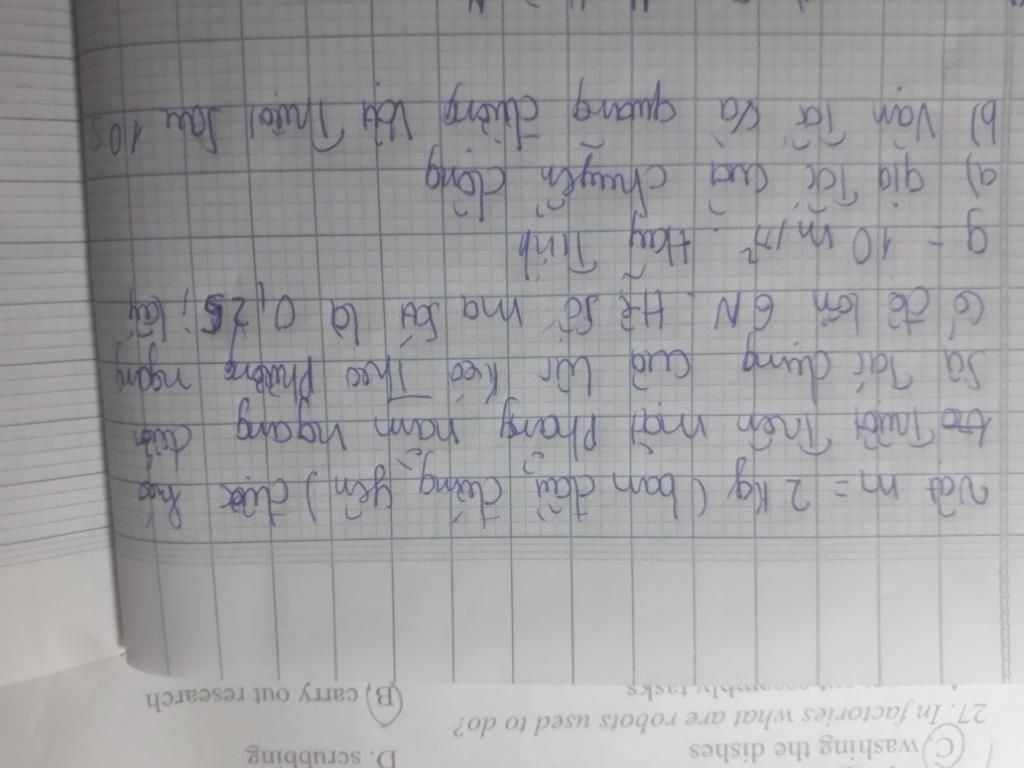 C washing the dishes D. scrubbing
27. In factories what are robots used to do?
B. carry out research
vật m = 2 kg (ban đầu đứng yên) được kéo
trượt trên mặt phẳng nằm ngang dưới
sự tác dụng của lực kéo theo phương ngang
có độ lớn 6N. Hệ số ma sát là 0,25; lấy
g = 10 m/s². Hãy tính
a) gia tốc của chuyển động
b) vận tốc và quãng đường vật trượt sau 10s